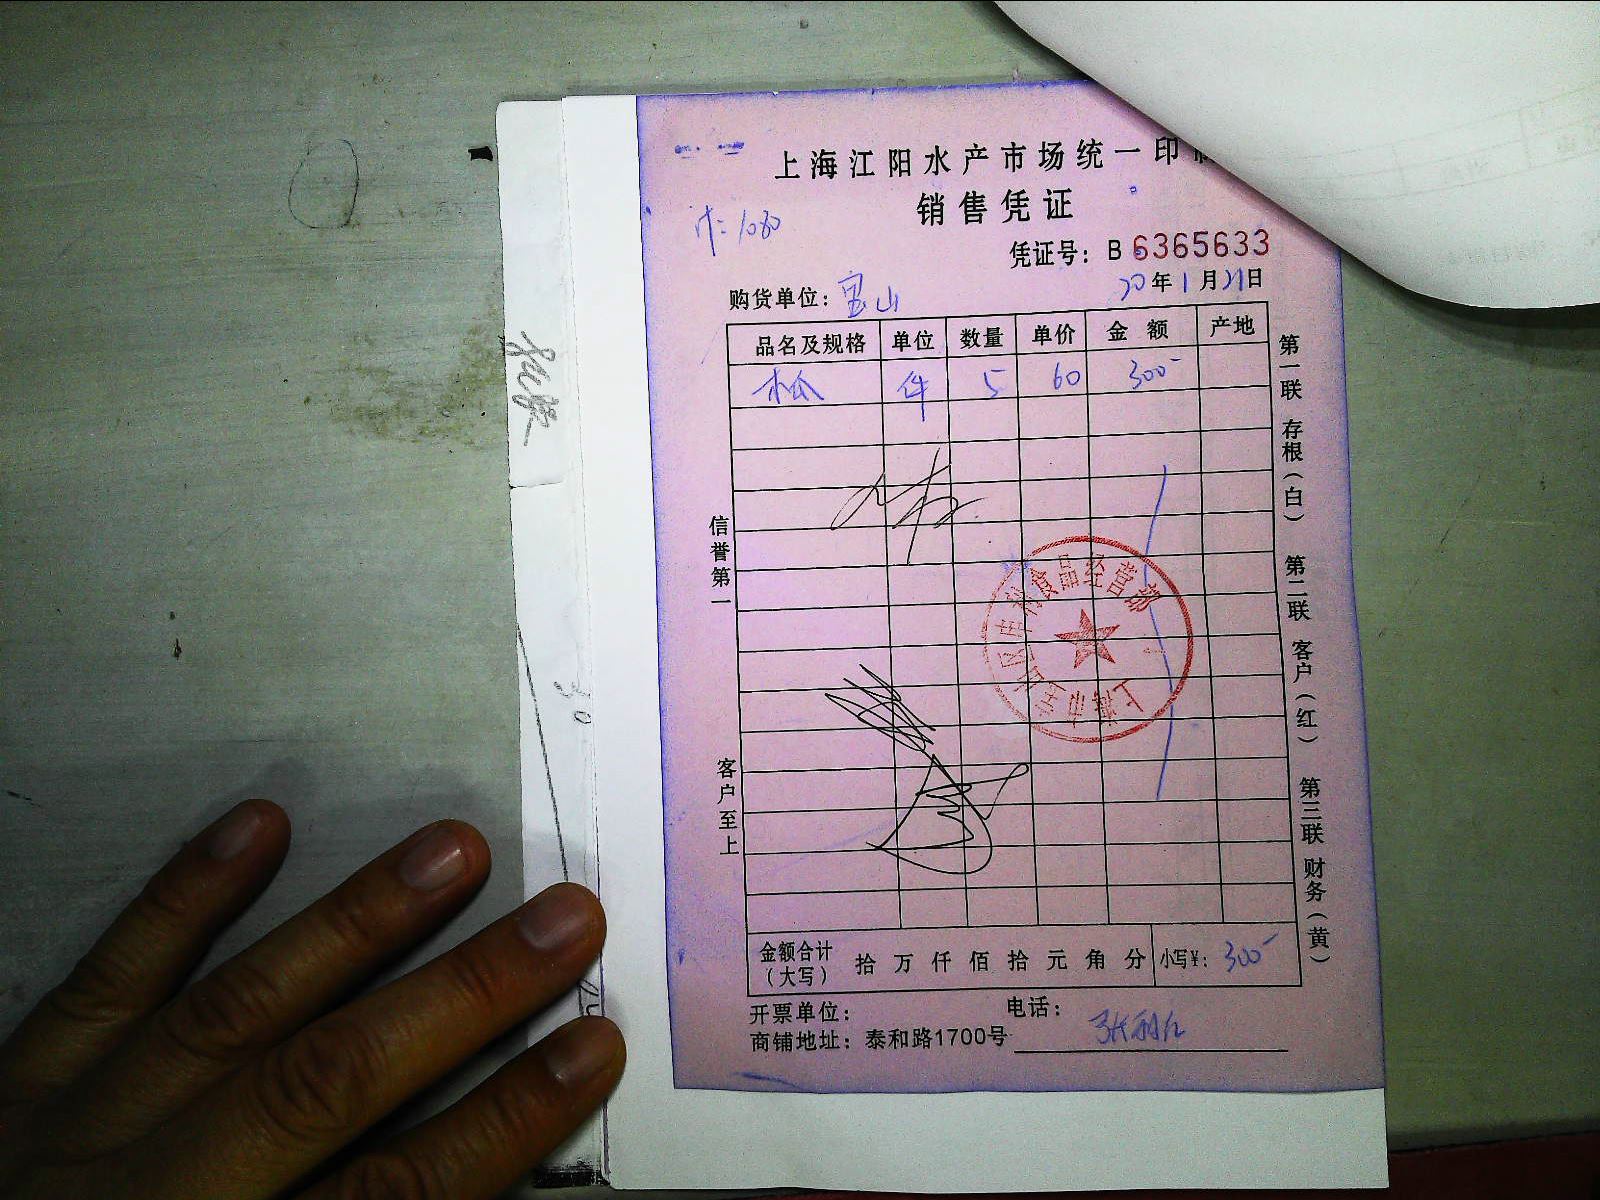 上海江阳水产市场统一印制
销售凭证
凭证号：B 6365633
购货单位：宝山
20年1月21日
品名及规格 单位 数量 单价 金额 产地
木瓜 件 5 60 300
信誉第一
客户至上
第一联 存根（白） 第二联 客户（红） 第三联 财务（黄）
金额合计（大写） 拾 万 仟 佰 拾 元 角 分 小写¥：300
开票单位： 电话：
商铺地址：泰和路1700号
30